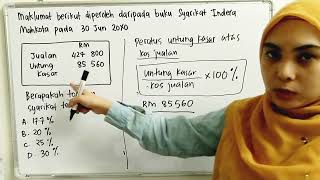 Maklumat berikut diperoleh daripada buku Syarikat Indera
Mahkota pada 30 Jun 20X0
RM
Jualan 427 800
Untung Kasar 85 560
Berapakah
syarikat
A. 17.7 %
B. 20 %
C. 25 %
D. 30 %
Peratus untung kasar atas
kos jualan
Untung kasar
kos jualan
× 100 %
RM 85560